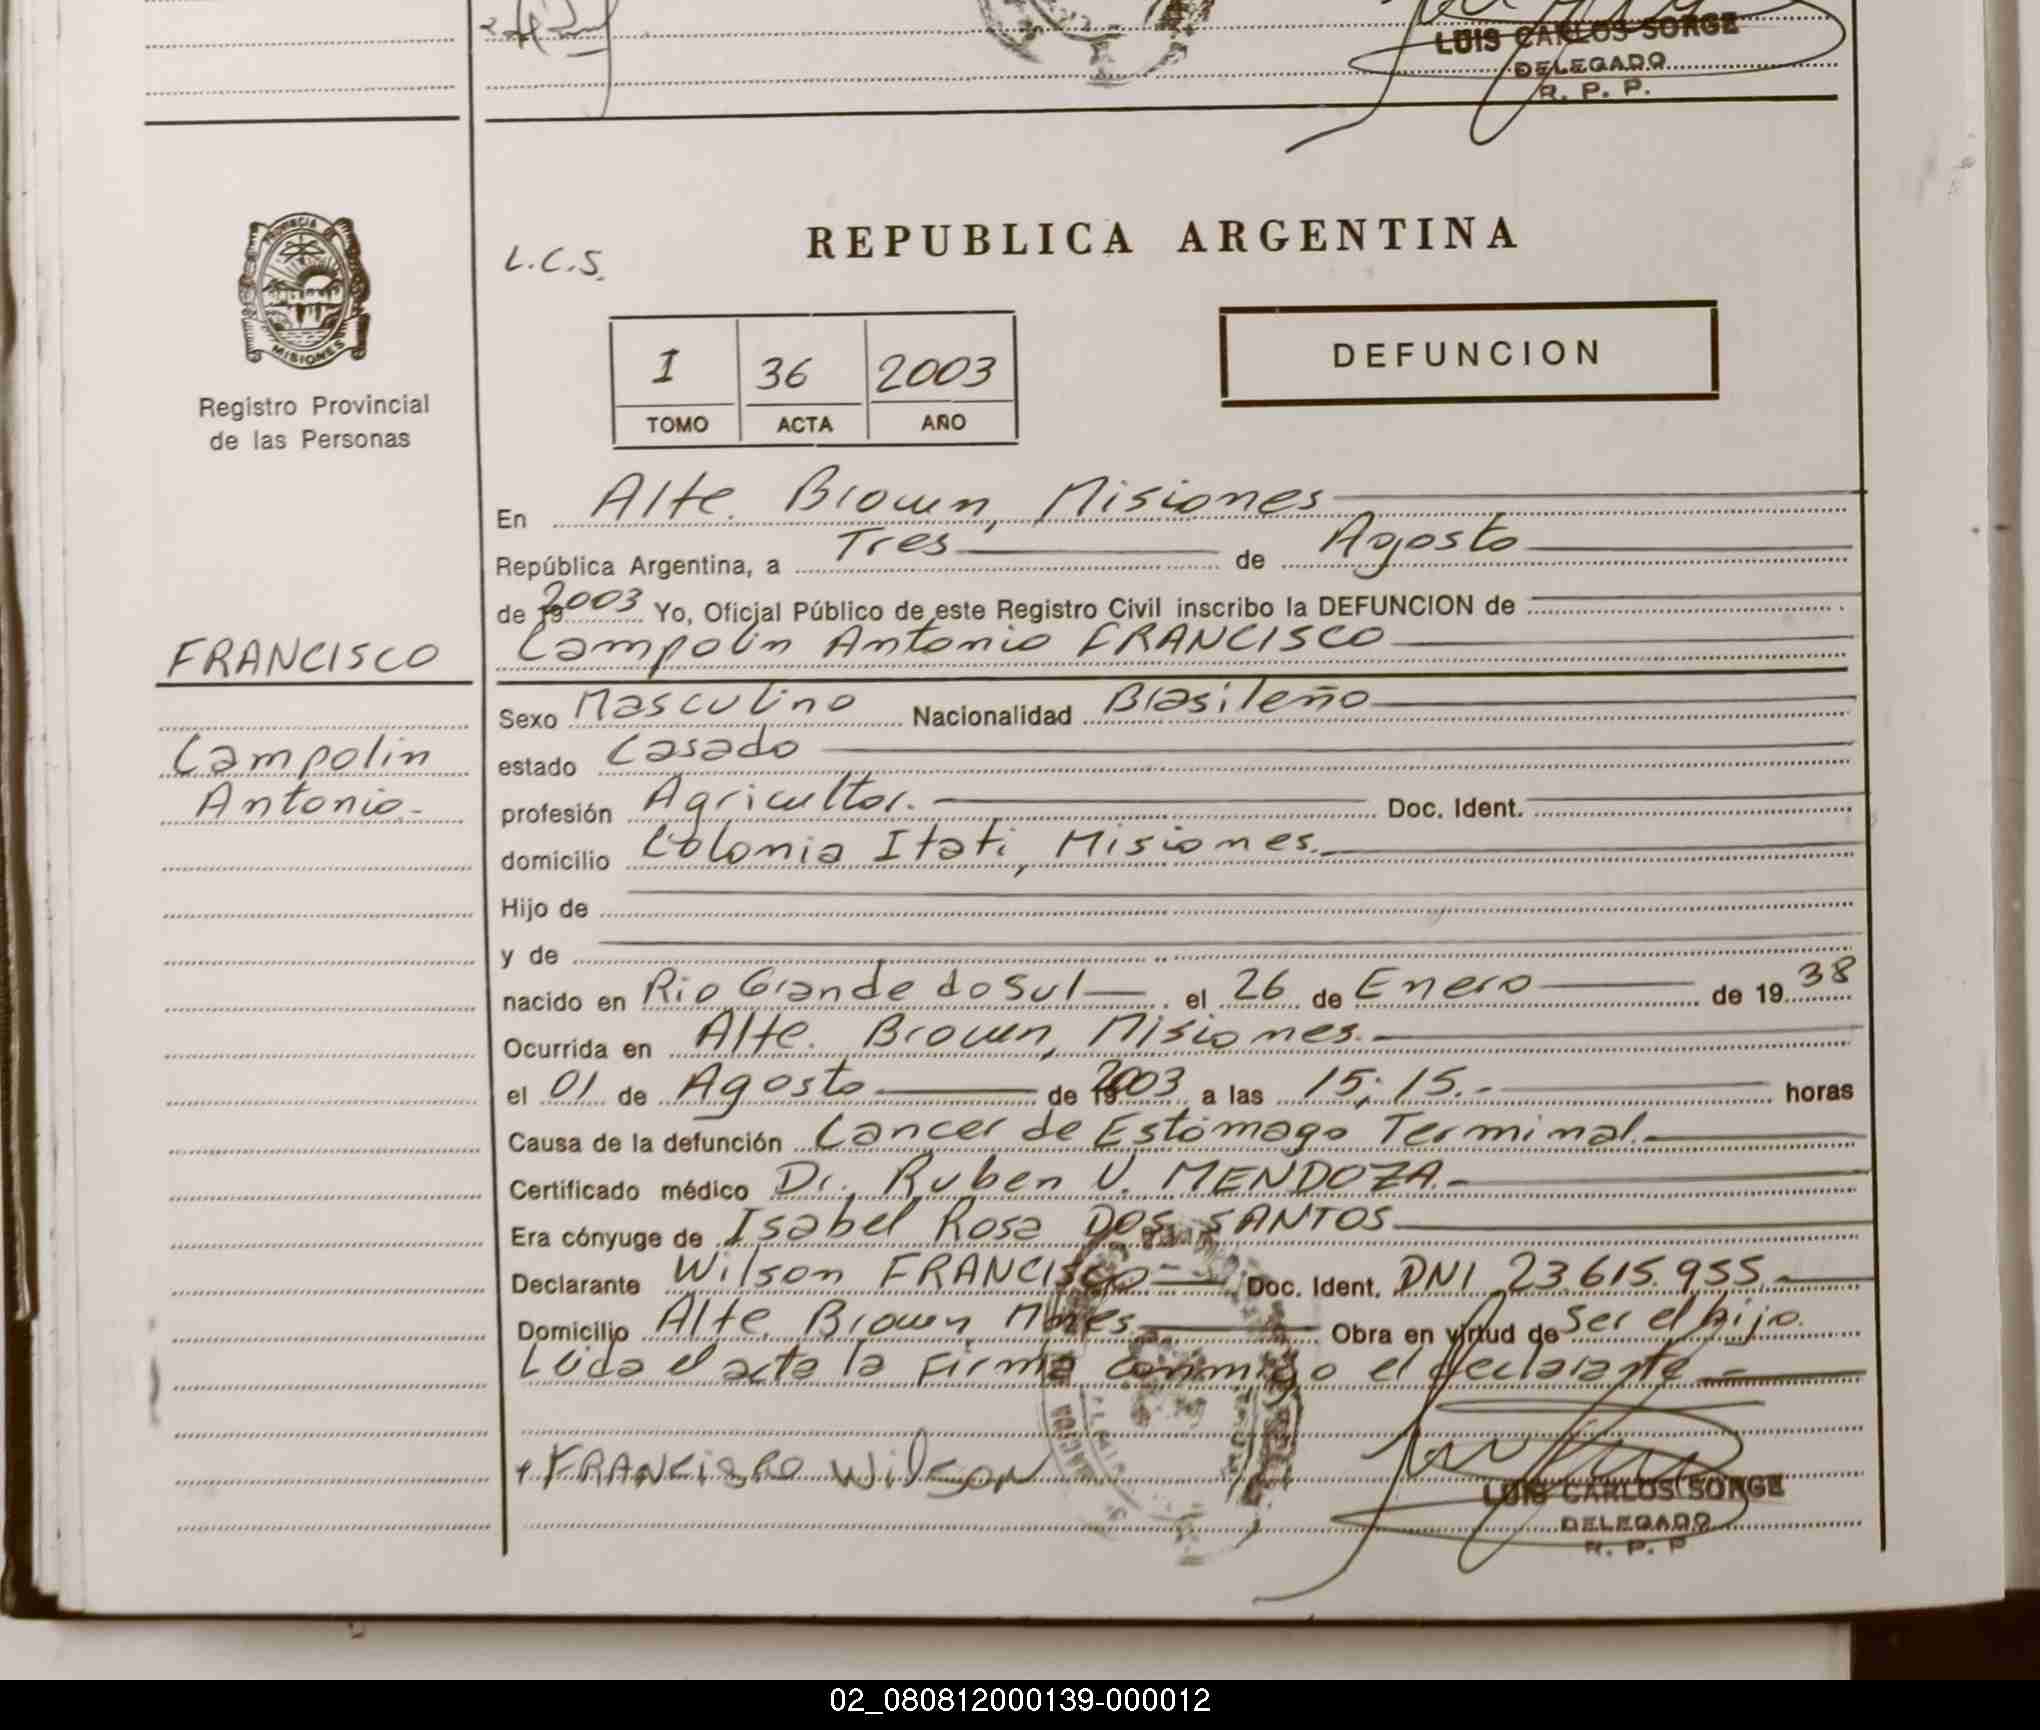 LUIS CARLOS SORGE
DELEGADO
R. P. P.
PROVINCIA
MISIONES
Registro Provincial
de las Personas
L.C.S.
REPUBLICA ARGENTINA
I 36 2003
TOMO ACTA AÑO
DEFUNCION
En Alte. Brown, Misiones
República Argentina, a Tres de Agosto
de 2003 Yo, Oficial Público de este Registro Civil inscribo la DEFUNCION de
FRANCISCO
Campolin Antonio FRANCISCO
Sexo Masculino Nacionalidad Brasileño
Campolin
estado Casado
Antonio.-
profesión Agricultor. Doc. Ident.
domicilio Colonia Itati, Misiones.
Hijo de
y de
nacido en Rio Grande do Sul el 26 de Enero de 1938
Ocurrida en Alte. Brown, Misiones.
el 01 de Agosto de 2003 a las 15;15.- horas
Causa de la defunción Cancer de Estómago Terminal.
Certificado médico Dr. Ruben V. MENDOZA.-
Era cónyuge de Isabel Rosa DOS SANTOS
Declarante Wilson FRANCISCO Doc. Ident. DNI 23.615.955.-
Domicilio Alte. Brown, Mnes. Obra en virtud de ser el hijo.
Leida el acta la firma conmigo el declarante
FRANCISCO Wilson
LUIS CARLOS SORGE
DELEGADO
R. P. P.
02_080812000139-000012